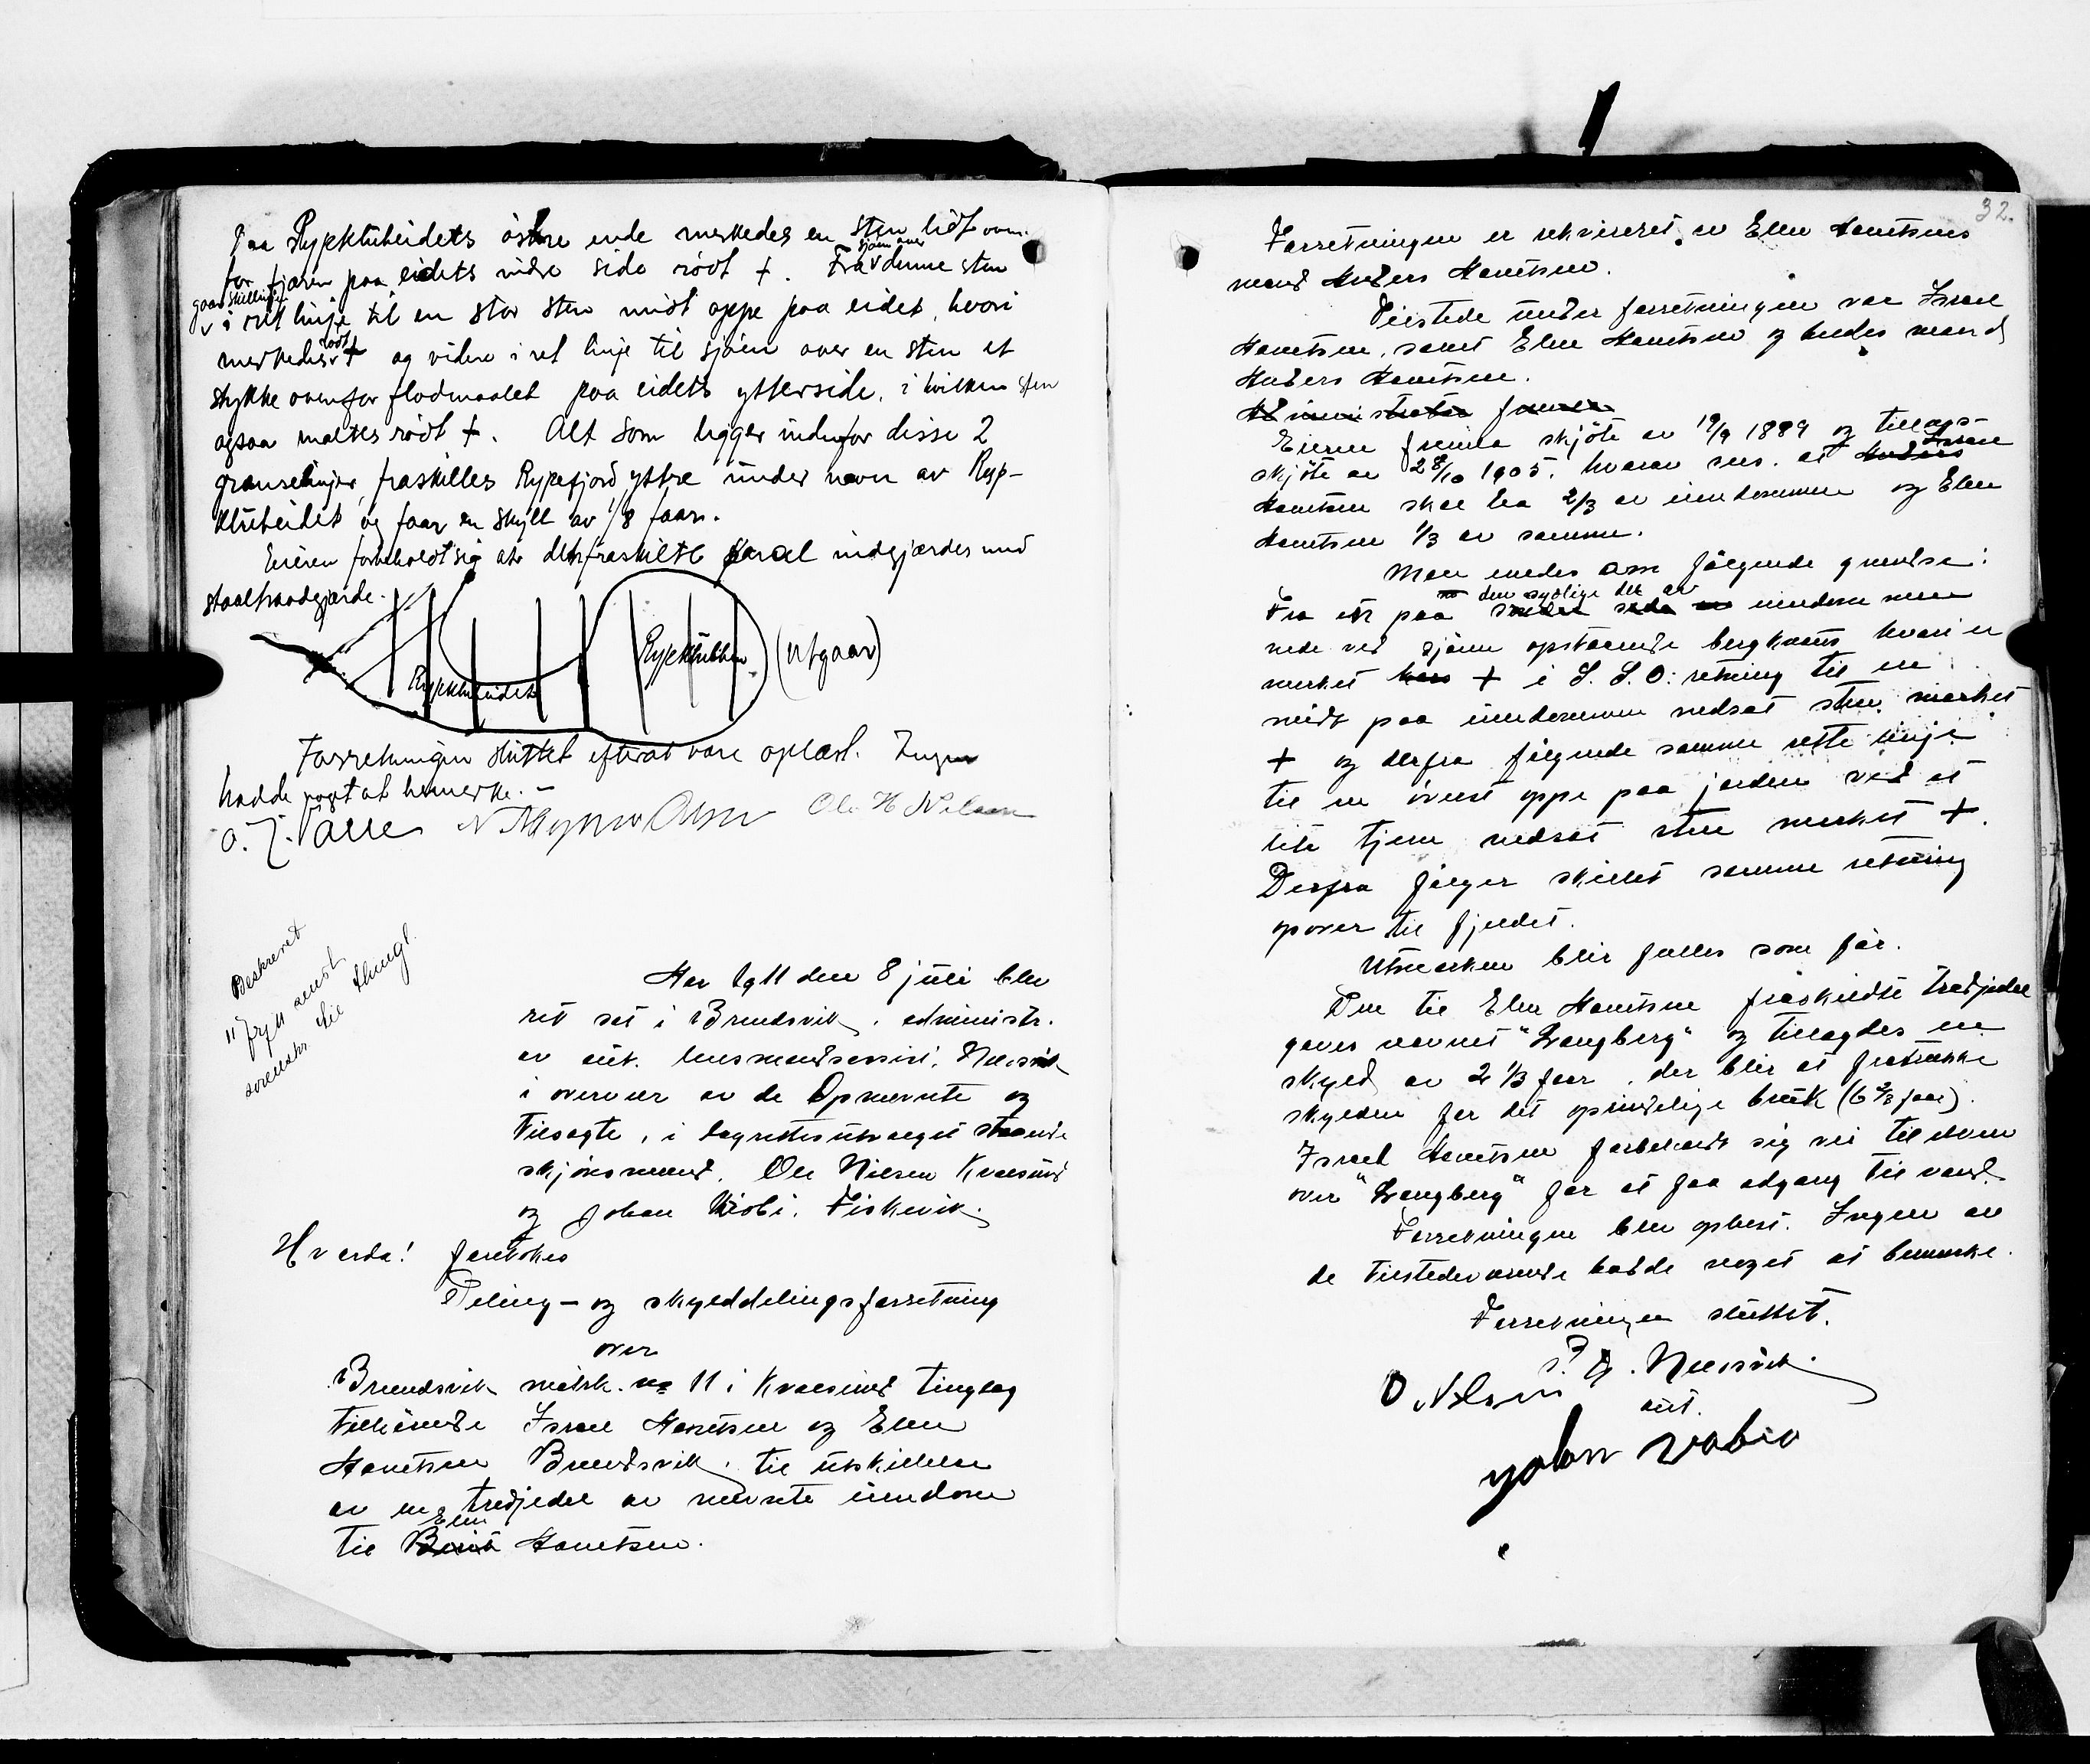 Paa Rypklubeidets östre ende merkedes en sten lidt oven-
for fjæren paa eidets indre side rödt +. Fra sjöen over denne sten
gaar skillet
i ret linje til en stor sten midt oppe paa eidet, hvori
merkedes rödt + og videre i ret linje til sjöen over en sten et
stykke ovenfor flodmaalet paa eidets ytterside, i hvilken sten
ogsaa maltes rödt +. Alt som ligger indenfor disse 2
grænselinjer fraskilles Rypefjord ytre under navn av Ryp-
klubeidet og faar en skyld av 1/8 faar.
Eieren forbeholdt sig at det fraskilte areal indgjærdes med
staaltraadgjærde.
Rypklubeidet
Rypklubben
(utgaar)
Forretningen sluttet efterat være oplæst. Ingen
hadde noget at bemerke. -
Ole H Nilsen
Beskrevet
Aar 1911 den 8 juli blev
ret sat i Brendsvik, administr.
av aut. lensmandsassist. Neersvik
i overvær av de opnævnte og
tilsagte, i lagrettesutvalget staaende
skjönsmænd, Ole Nilsen Kvalsund
og Johan Wiobi, Fiskevik.
Hvorda! foretokes
Deling- og skylddelingsforretning
over
Brendsvik matrk. no 11 i Kvalsund tinglag
tilhörende Israel Hansen og Elen
Hansen Brendsvik, til utskillelse
av en tredjedel av nævnte eiendom
til Berit Elen Hansen.
32.
Forretningen er rekvireret av Elen Hansens
mand Anders Hansen.
Tilstede under forretningen var Israel
Hansen, samt Elen Hansen og hendes mand
Anders Hansen.
Administrator
Eieren fremla skjöte av 19/9 1889 og tillægs-
skjöte av 28/10 1905, hvorav sees, at Anders Israel
Hansen skal ha 2/3 av eiendommen og Elen
Hansen 1/3 av samme.
Man enedes om fölgende grændse:
Fra et paa den sydlige del av eiendommen
nede ved sjöen opstaaende bergknaus hvori er
merket kors + i S. S. O: retning til en
midt paa eiendommen nedsat sten, merket
+ og derfra fölgende samme rette linje
til en överst oppe paa jorden ved et
lite tjern nedsat sten merket +.
Derfra fölger skillet samme retning
opover til fjeldet.
Utmarken blir fælles som för.
Den til Elen Hansen fraskildte tredjedel
gaves navnet "Langberg" og tillagdes en
skyld av 2 1/3 faar, der blir at fratrække
skylden for det oprindelige bruk (6 2/3 faar).
Israel Hansen forbeholdt sig vei til
over "Langberg" for at faa adgang til vand.
Forretningen blev oplæst. Ingen av
de tilstedeværende hadde noget at bemerke.
Forretningen sluttet.
Neersvik
aut.
O Nilsen